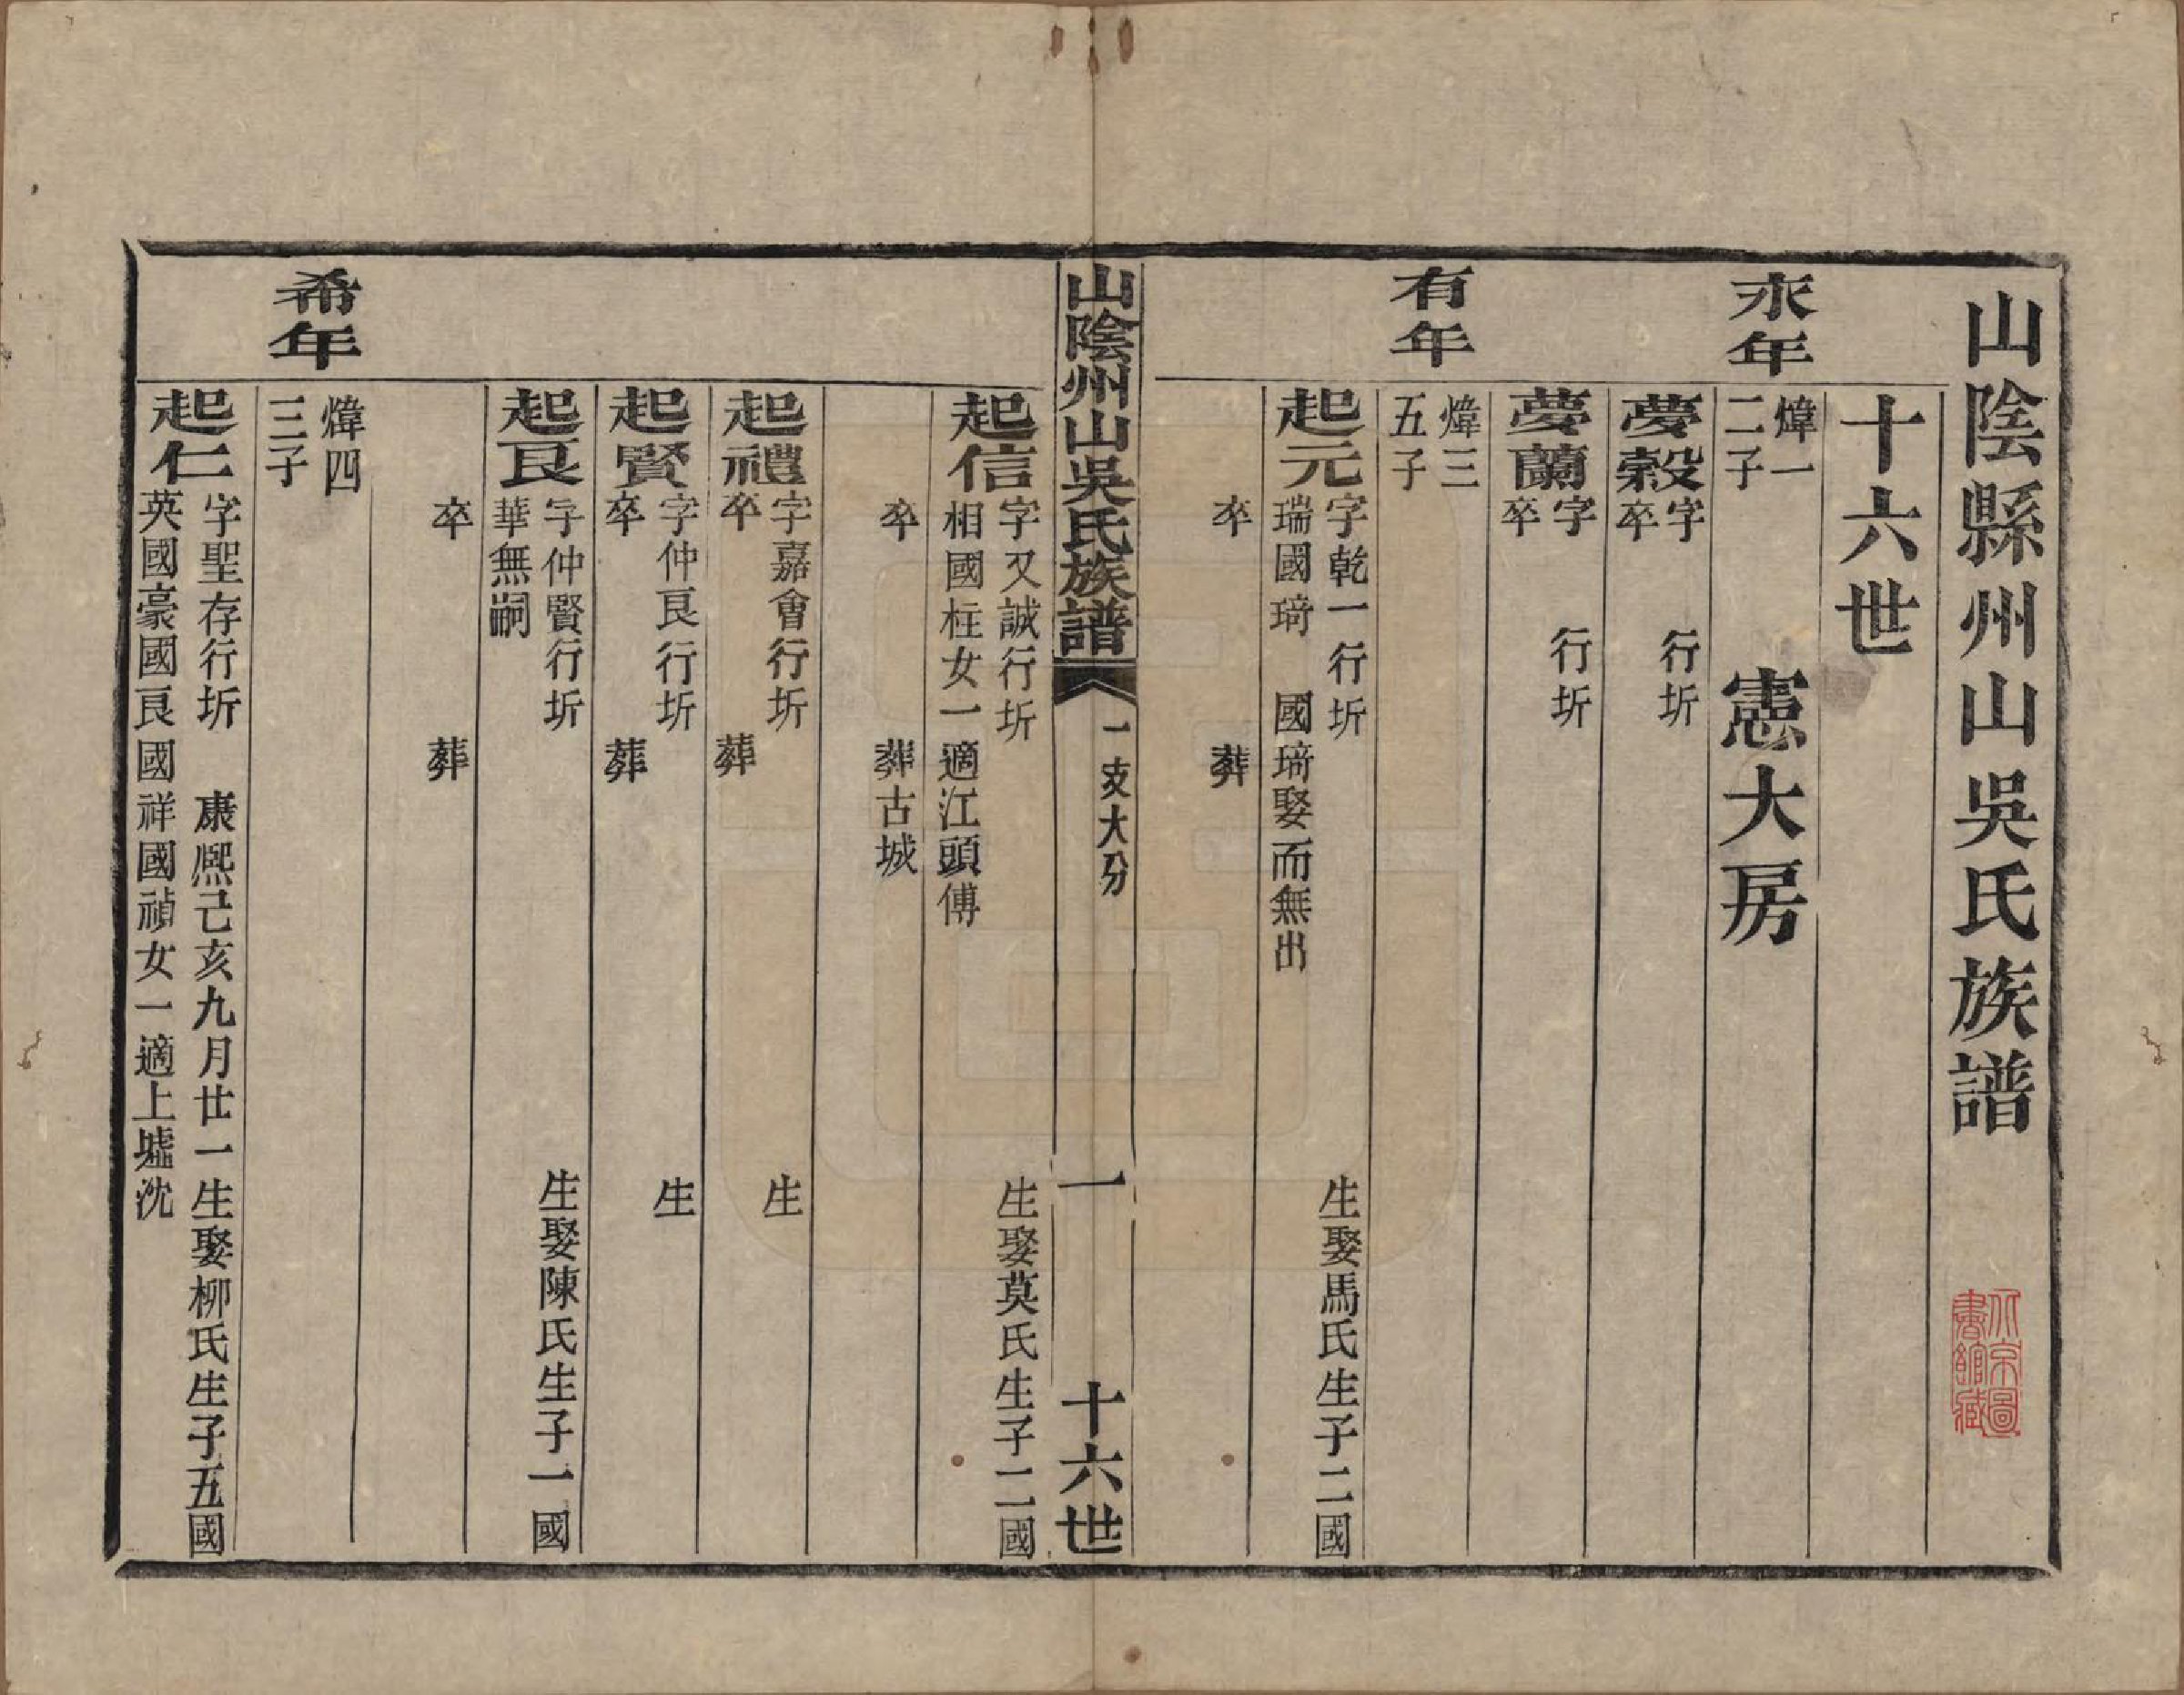 山陰縣州山吳氏族譜
十六世
憲大房
永年
煒一
二子
夢穀
字 行圻
卒
夢蘭
字 行圻
卒
有年
煒三
五子
起元
字乾一行圻 生娶馬氏生子二國
瑞國琦 國琦娶而無出
卒 葬
山陰州山吳氏族譜 一支大分 一 十六世
起信
字又誠行圻 生娶莫氏生子二國
相國柱女一適江頭傅
卒 葬古城
起禮
字嘉會行圻 生
卒 葬
起賢
字仲良行圻 生
卒 葬
起良
字仲賢行圻 生娶陳氏生子一國
華無嗣
卒 葬
希年
煒四
三子
起仁
字聖存行圻 康熙己亥九月廿一生娶柳氏生子五國
英國豪國良國祥國禎女一適上墟沈
北京圖
書館藏